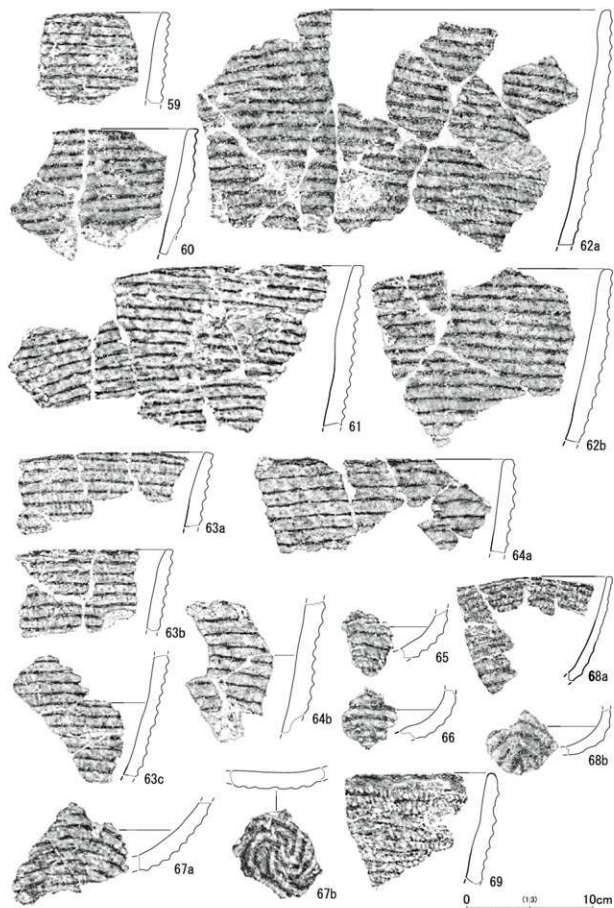 59
60
62a
61
62b
63a
64a
63b
64b
65
66
68a
68b
63c
67a
67b
69
0 (1:3) 10cm